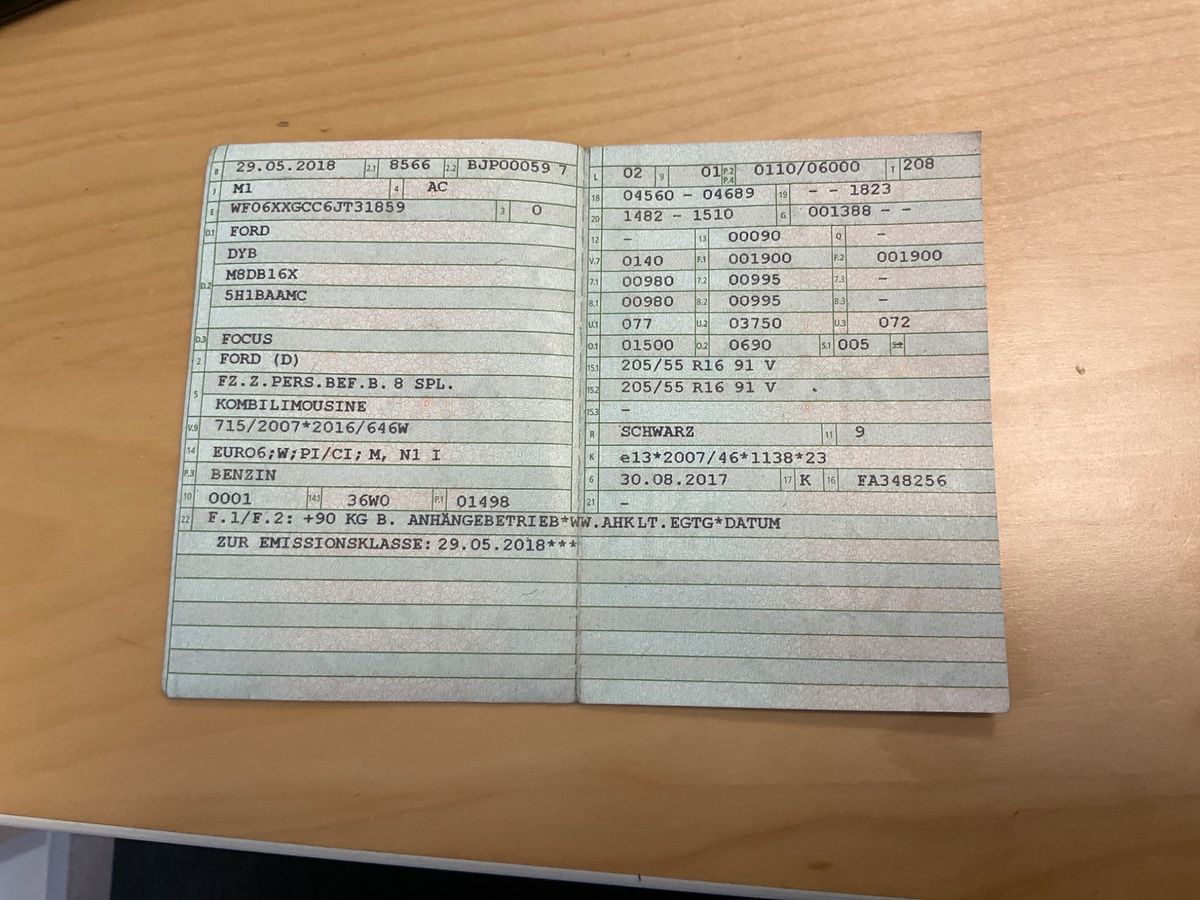 B 29.05.2018 2.1 8566 2.2 BJP00059 7
J M1 4 AC
E WF06XXGCC6JT31859 3 0
D.1 FORD
D.2 DYB
M8DB16X
5H1BAAMC
D.3 FOCUS
2 FORD (D)
5 FZ.Z.PERS.BEF.B. 8 SPL.
KOMBILIMOUSINE
V.9 715/2007*2016/646W
14 EURO6;W;PI/CI; M, N1 I
P.3 BENZIN
10 0001 14.1 36W0 P.1 01498
L 02 9 01 P.2 P.4 0110/06000 T 208
18 04560 - 04689 19 - - 1823
20 1482 - 1510 G 001388 - -
12 - 13 00090 Q -
V.7 0140 F.1 001900 F.2 001900
7.1 00980 7.2 00995 7.3 -
8.1 00980 8.2 00995 8.3 -
U.1 077 U.2 03750 U.3 072
O.1 01500 O.2 0690 S.1 005 S.2
15.1 205/55 R16 91 V
15.2 205/55 R16 91 V
15.3 -
R SCHWARZ 11 9
K e13*2007/46*1138*23
6 30.08.2017 17 K 16 FA348256
21 -
22 F.1/F.2: +90 KG B. ANHÄNGEBETRIEB*WW.AHKLT.EGTG*DATUM
ZUR EMISSIONSKLASSE: 29.05.2018***